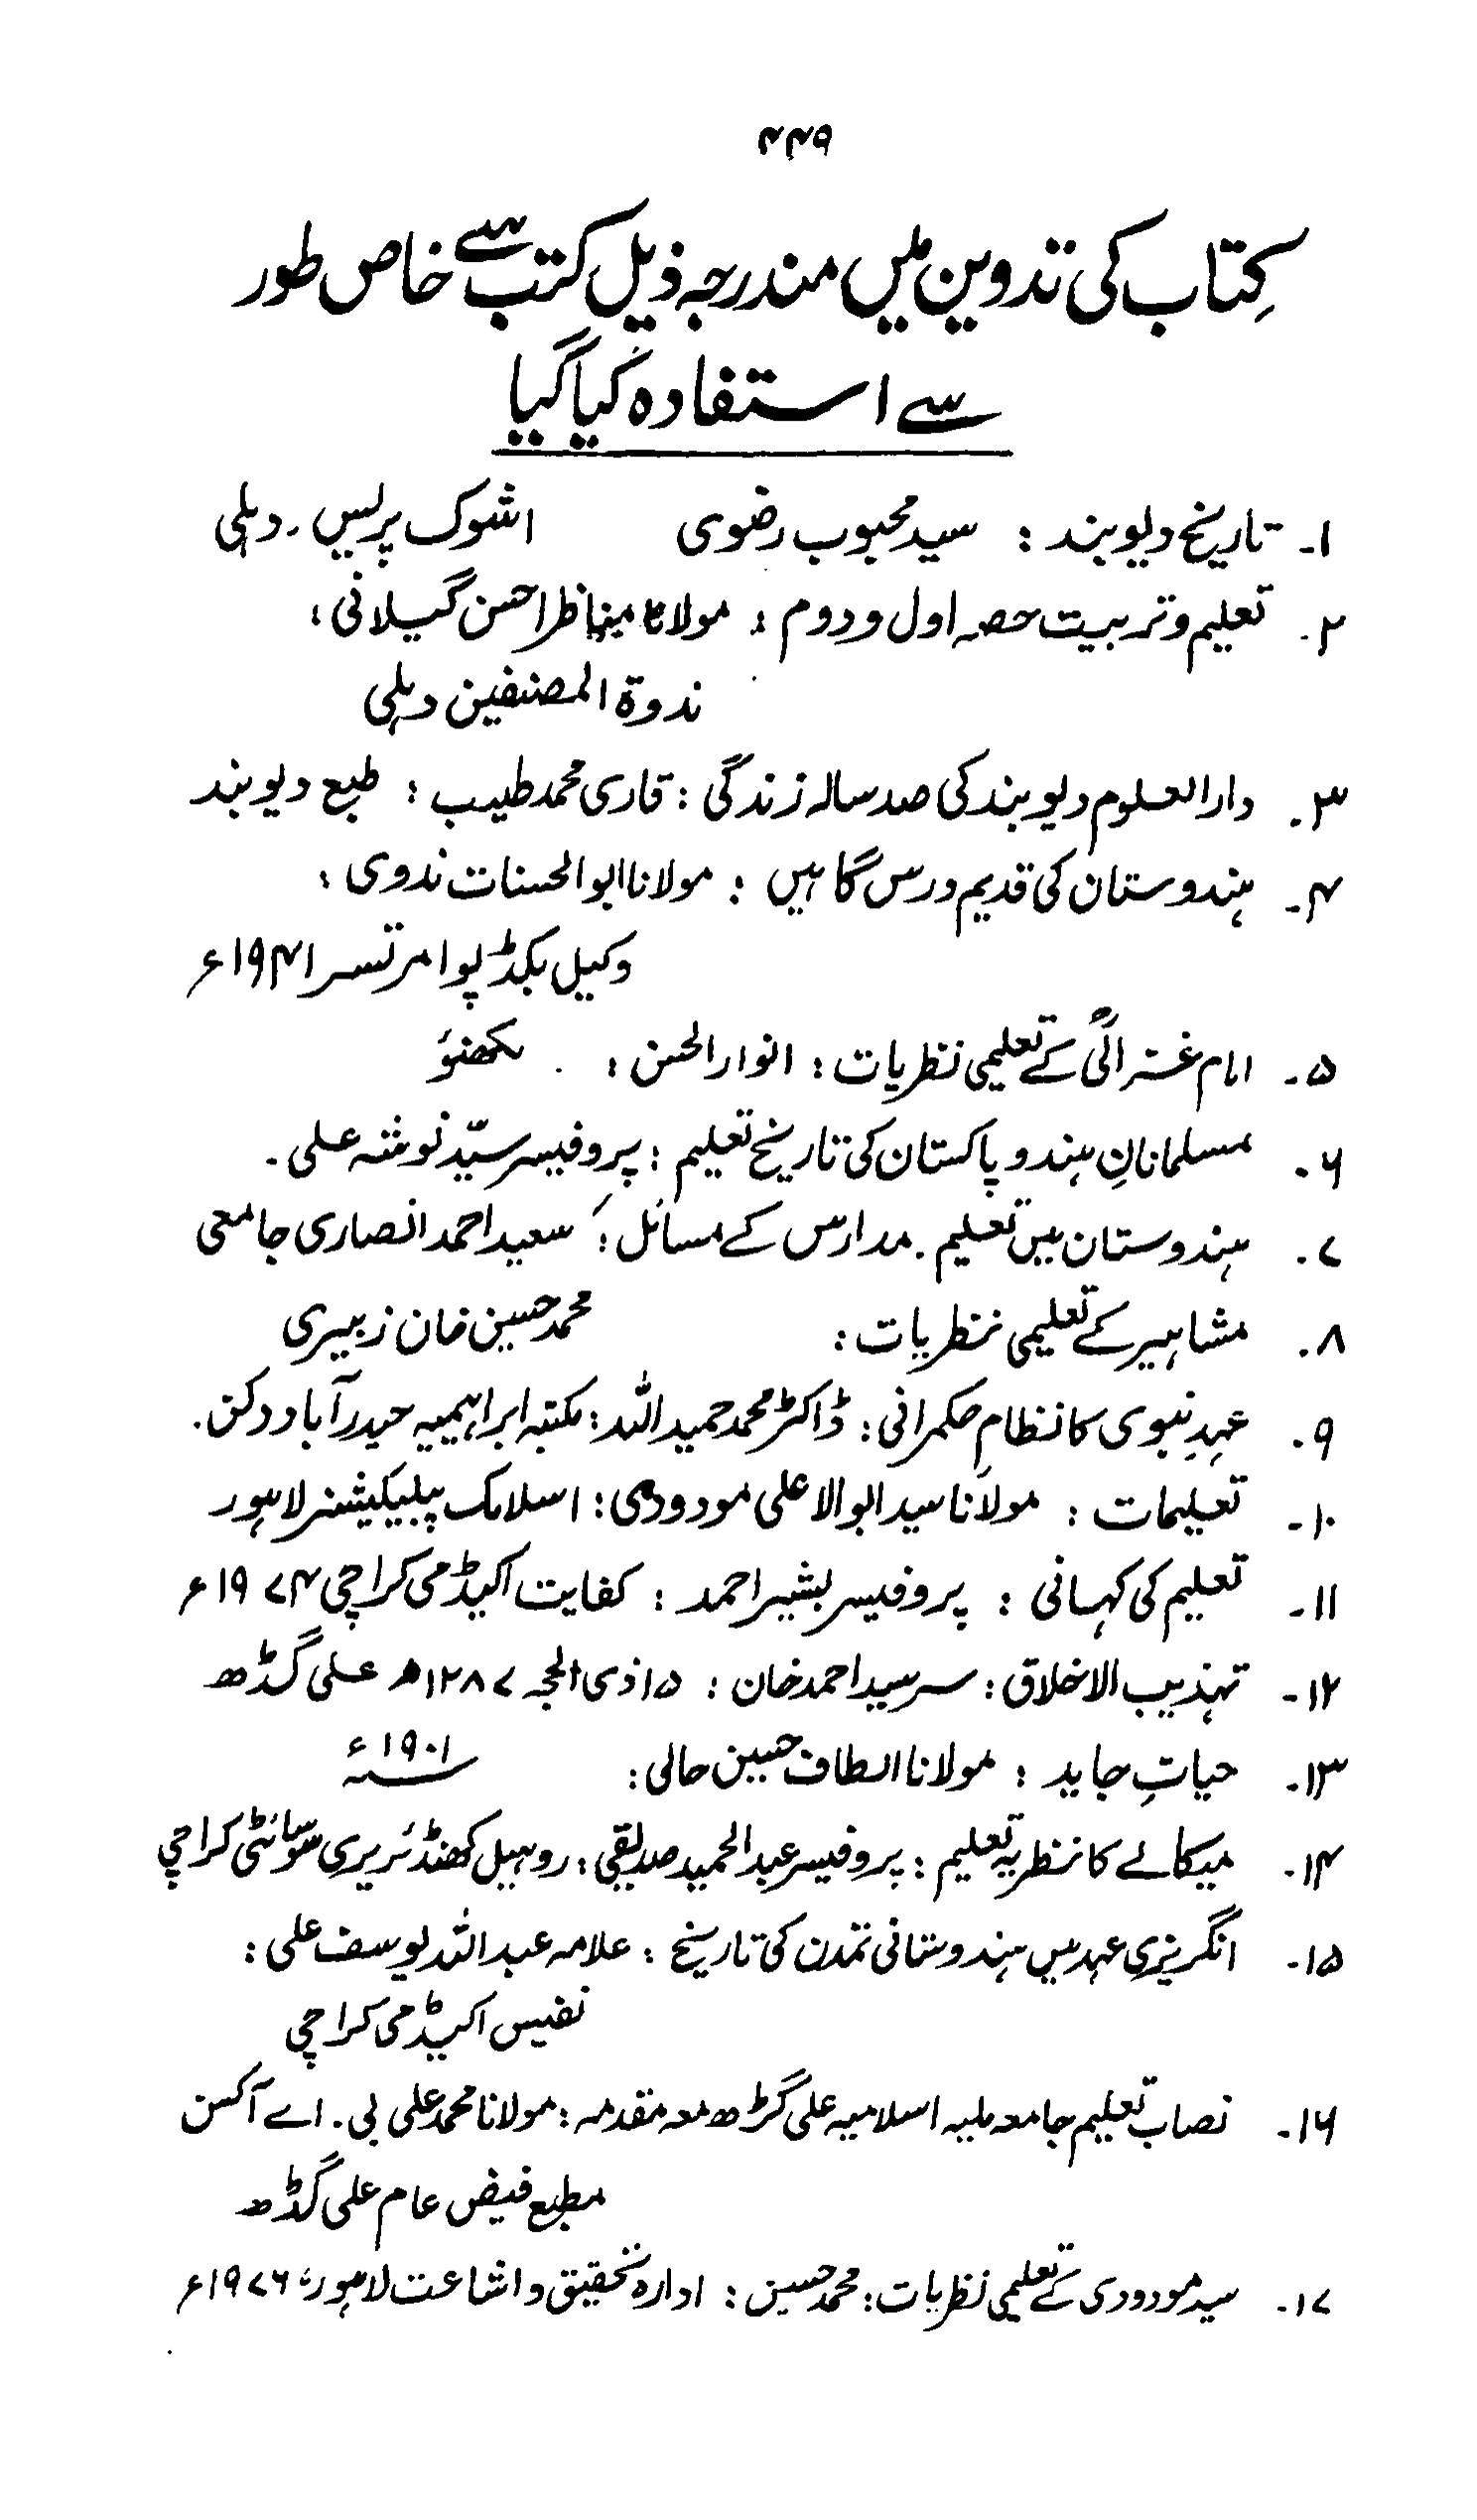 ۴۴۹
کتاب کی تدوین میں مندرجہ ذیل کتب سے خاص طور
سے استفادہ کیا گیا
۱۔ تاریخ دیوبند : سید محبوب رضوی اشوک پریس۔ دہلی
۲۔ تعلیم و تربیت حصہ اول و دوم : مولانا مناظر احسن گیلانی :
ندوۃ المصنفین دہلی
۳۔ دارالعلوم دیوبند کی صد سالہ زندگی : قاری محمد طیب : طبع دیوبند
۴۔ ہندوستان کی قدیم درس گاہیں : مولانا ابوالحسنات ندوی :
وکیل بکڈپو امرتسر ۱۹۴۱ء
۵۔ امام غزالیؒ کے تعلیمی نظریات : انوار الحسن : لکھنؤ
۶۔ مسلمانانِ ہند و پاکستان کی تاریخ تعلیم : پروفیسر سیّد نوشہ علی۔
۷۔ ہندوستان میں تعلیم۔ مدارس کے مسائل : سعید احمد انصاری جامعی
۸۔ مشاہیر کے تعلیمی نظریات : محمد حسین خان زبیری
۹۔ عہدِ نبوی کا نظامِ حکمرانی : ڈاکٹر محمد حمید اللہ : مکتبہ ابراہیمیہ حیدرآباد دکن۔
۱۰۔ تعلیمات : مولانا سید ابوالاعلی مودودی : اسلامک پبلیکیشنر لاہور
۱۱۔ تعلیم کی کہانی : پروفیسر بشیر احمد : کفایت اکیڈمی کراچی ۱۹۷۴ء
۱۲۔ تہذیب الاخلاق : سر سید احمد خان : ۱۵ ذی الحجہ ۱۲۸۷ھ علی گڈھ
۱۳۔ حیاتِ جاید : مولانا الطاف حسین حالی : ۱۹۰۱ء
۱۴۔ میکالے کا نظریہ تعلیم : پروفیسر عبدالحمید صدیقی : روہیل کھنڈ لٹریری سوسائٹی کراچی
۱۵۔ انگریزی عہد میں ہندوستانی تمدن کی تاریخ : علامہ عبداللہ یوسف علی :
نفیس اکیڈمی کراچی
۱۶۔ نصاب تعلیم جامعہ ملیہ اسلامیہ علی گڑھ معہ مقدمہ : مولانا محمد علی بی۔ اے آکسن
مطبع فیض عام علی گڈھ
۱۷۔ سید مودودی کے تعلیمی نظریات : محمد حسین : ادارہ تحقیق و اشاعت لاہور، ۱۹۷۶ء